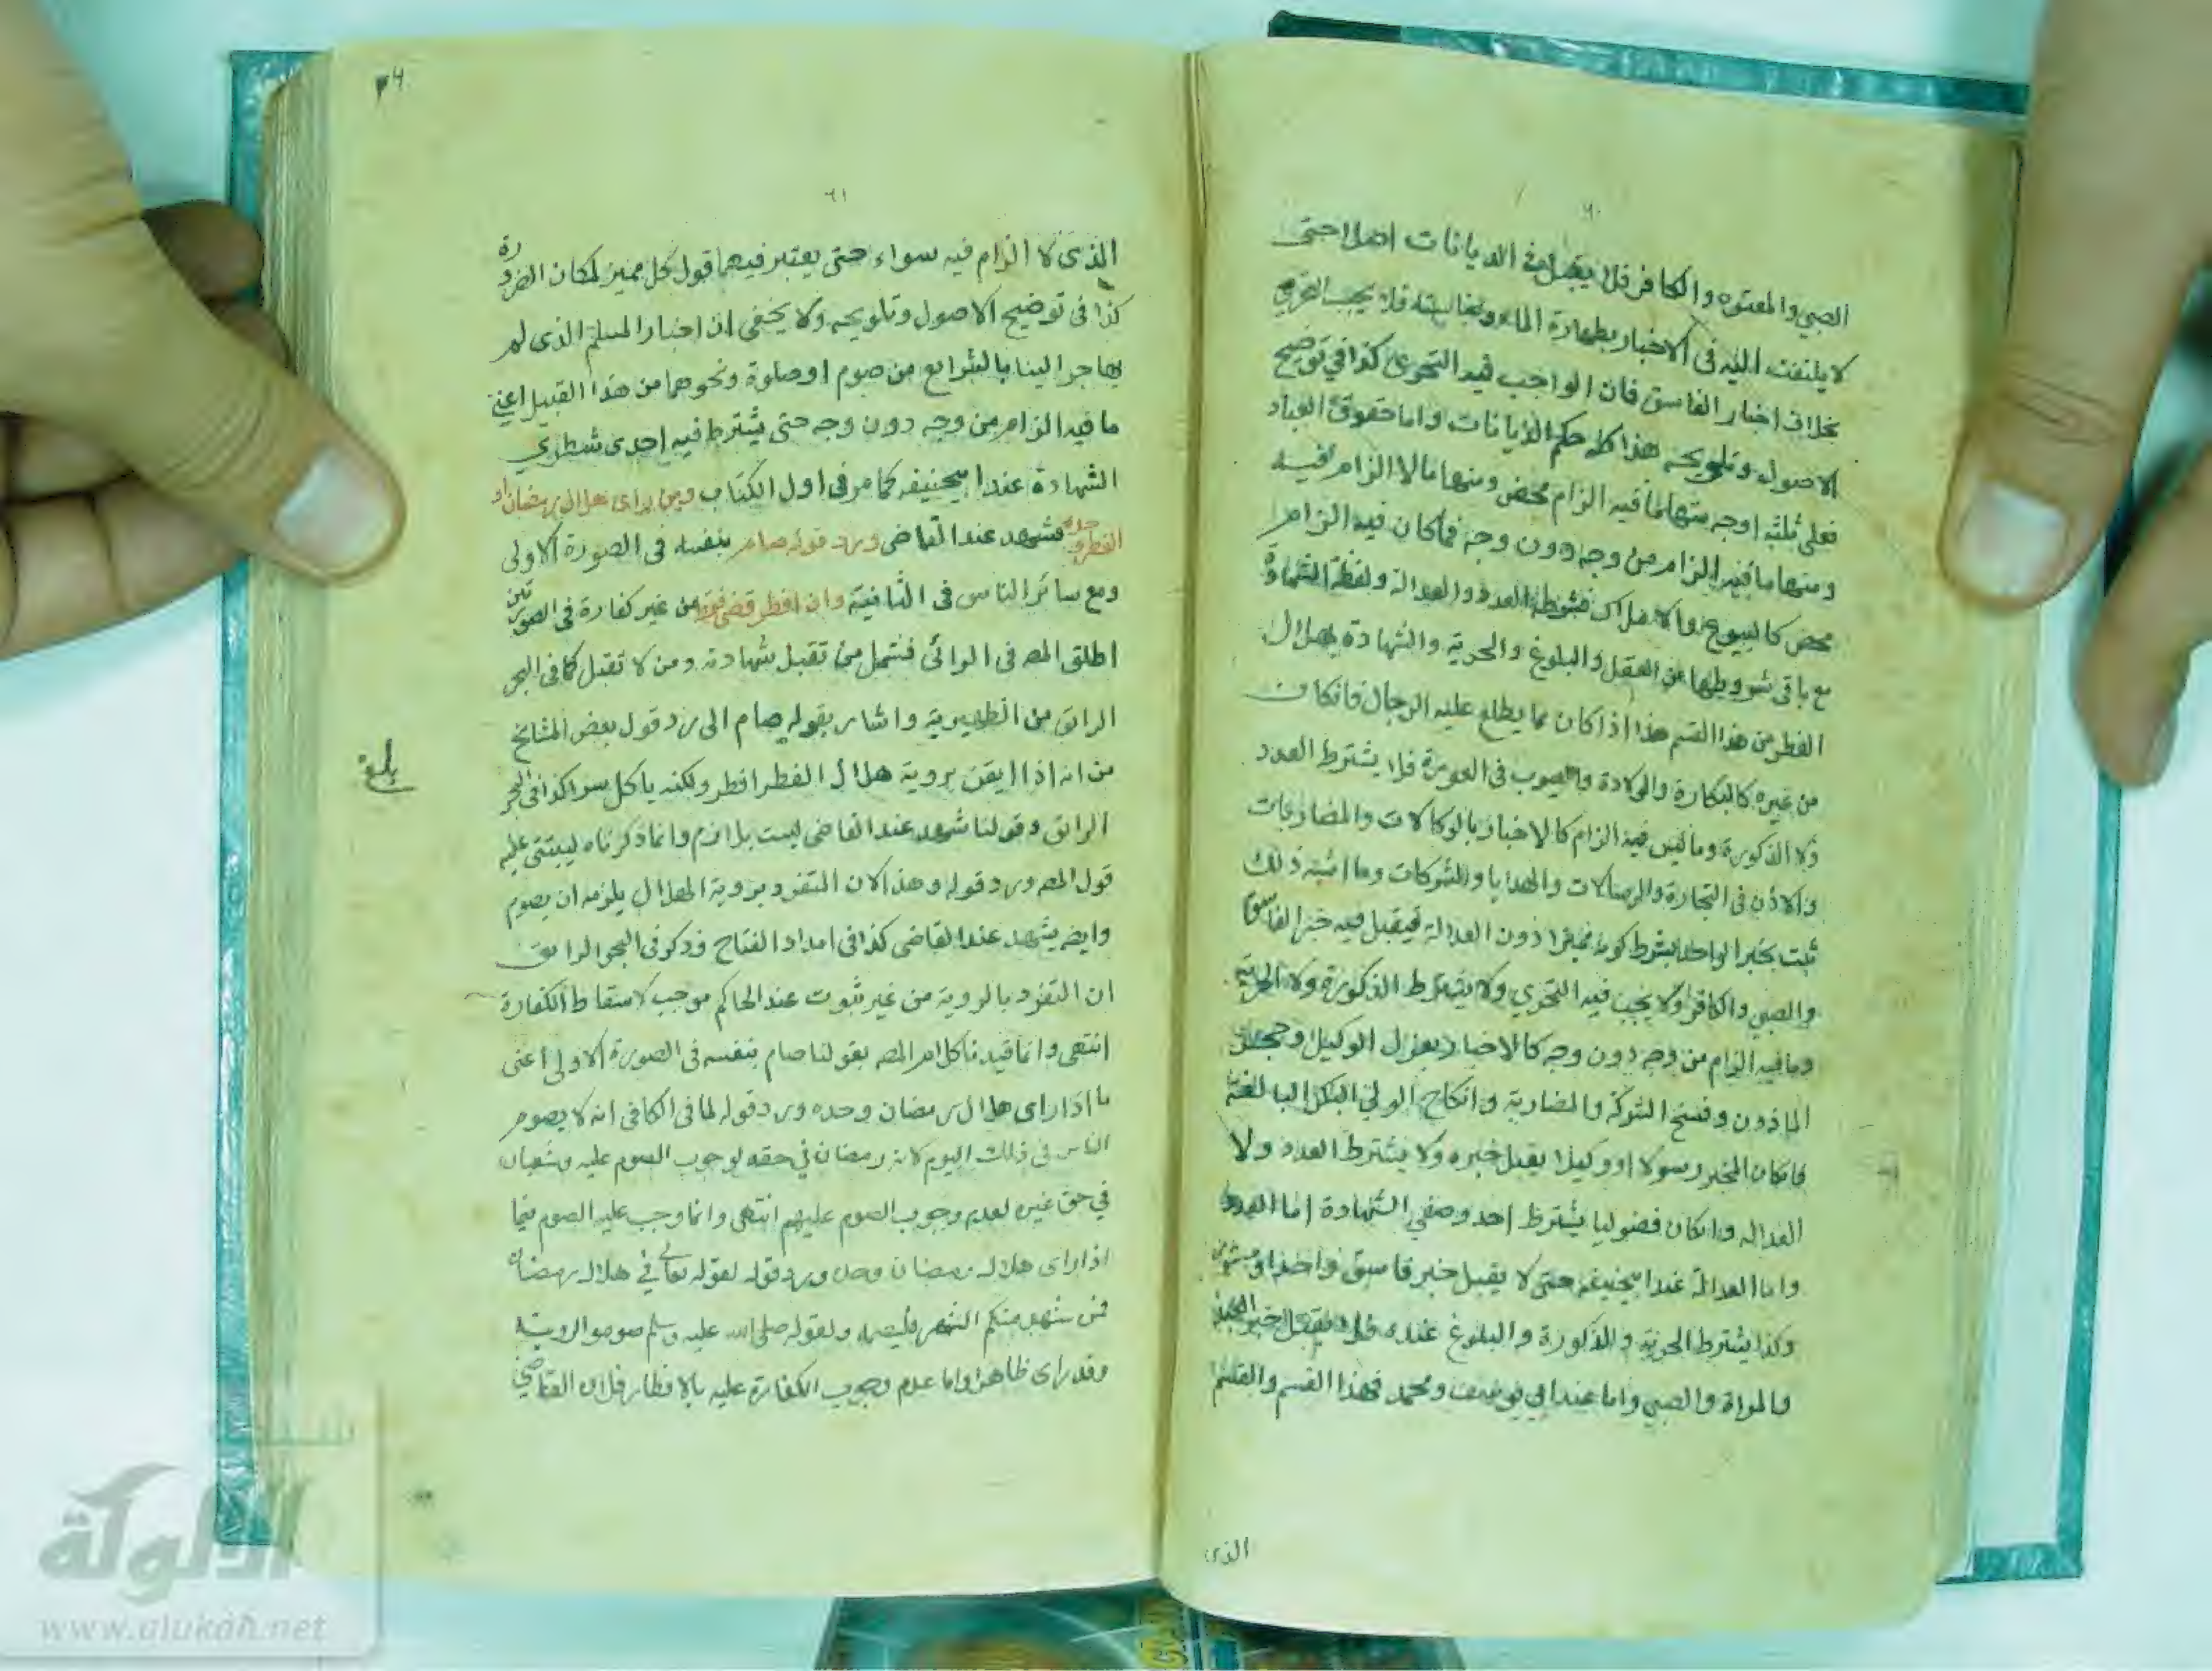 ٦٠
الصبي والمعتوه والكافر فلا يقبل في الديانات اصلا حتى
لا يلتفت اليه في الاخبار بطهارة الماء ونجاسته فلا يجب التحري
بخلاف اخبار الفاسق فان الواجب فيه التحري كذا في توضيح
الاصول وتلويحه هذا كله حكم الديانات واما حقوق العباد
فعلى ثلثة اوجه منها ما فيه الزام محض ومنها ما لا الزام فيه
ومنها ما فيه الزام من وجه دون وجه فما كان فيه الزام
محض كالبيوع والاملاك فشرطه العدد والعدالة ولفظة الشهادة
مع باقي شروطها من العقل والبلوغ والحرية والشهادة بهلال
الفطر من هذا القسم هذا اذا كان مما يطلع عليه الرجال فان كان
من غيره كالبكارة والولادة والعيوب في العورة فلا يشترط العدد
ولا الذكورة وما ليس فيه الزام كالاخبار بالوكالات والمضاربات
والاذن في التجارة والرسالات والهدايا والشركات وما اشبه ذلك
ثبت بخبر الواحد بشرط كونه مميزا دون العدالة فيقبل فيه خبر الفاسق
والصبي والكافر ولا يجب فيه التحري ولا يشترط الذكورة ولا الحرية
وما فيه الزام من وجه دون وجه كالاخبار بعزل الوكيل وحجر
الماذون وفسخ الشركة والمضاربة وانكاح الولي البكر البالغة
فان كان المخبر رسولا او وكيلا يقبل خبره ولا يشترط العدد ولا
العدالة وان كان فضوليا يشترط احد وصفي الشهادة اما العدد
واما العدالة عند ابيحنيفه حتى لا يقبل خبر فاسق واحد او
وكذا يشترط الحرية والذكورة والبلوغ عنده فلا يقبل خبر العبد
والمراة والصبي واما عند ابي يوسف ومحمد فهذا القسم والقسم
الذى
٦١
الذى لا الزام فيه سواء حتى يعتبر فيهما قول كل مميز لمكان الضرورة
كذا في توضيح الاصول وتلويحه ولا يخفى ان اخبار المسلم الذى لم
يهاجر الينا بالشرايع من صوم او صلوة ونحوهما من هذا القبيل اعني
ما فيه الزام من وجه دون وجه حتى يشترط فيه احدى شطري
الشهادة عند ابيحنيفه كما مر في اول الكتاب ومن راى هلال رمضان او
الفطر وحده فشهد عند القاضى ورد قوله صام بنفسه فى الصورة الاولى
ومع سائر الناس فى الثانية وان افطر قضى فقط من غير كفارة في الصورتين
اطلق المصـ فى الرائى فشمل من تقبل شهادته ومن لا تقبل كما في البحر
الرائق من الظهيرية واشار بقوله صام الى رد قول بعض المشايخ
من انه اذا ايقن بروية هلال الفطر افطر ولكنه ياكل سرا كذا في البحر
الرائق وقولنا شهد عند القاضى ليست بلازم وانما ذكرناه ليبتنى عليه
قول المصـ ورد قوله وهذا لان المتفرد بروية الهلال يلزمه ان يصوم
وايضـ يشهد عند القاضى كذا فى امداد الفتاح وذكر فى البحر الرائق
ان التفرد بالروية من غير ثبوت عند الحاكم موجب لاسقاط الكفارة
انتهى وانما قيدنا كلام المصـ بقولنا صام بنفسه فى الصورة الاولى اعنى
ما اذا راى هلال رمضان وحده ورد قوله لما فى الكافى انه لا يصوم
الناس في ذلك اليوم لانه رمضان في حقه لوجوب الصوم عليه وشعبان
في حق غيره لعدم وجوب الصوم عليهم انتهى وانما وجب عليه الصوم فيما
اذا راى هلال رمضان وحده ورد قوله لقوله تعالى في هلال رمضان
فمن شهد منكم الشهر فليصمه ولقوله صلى الله عليه وسلم صوموا لرويته
وقد راى ظاهرا واما عدم وجوب الكفارة عليه بالافطار فلان القاضي
بلغ
الألوكة
www.alukah.net